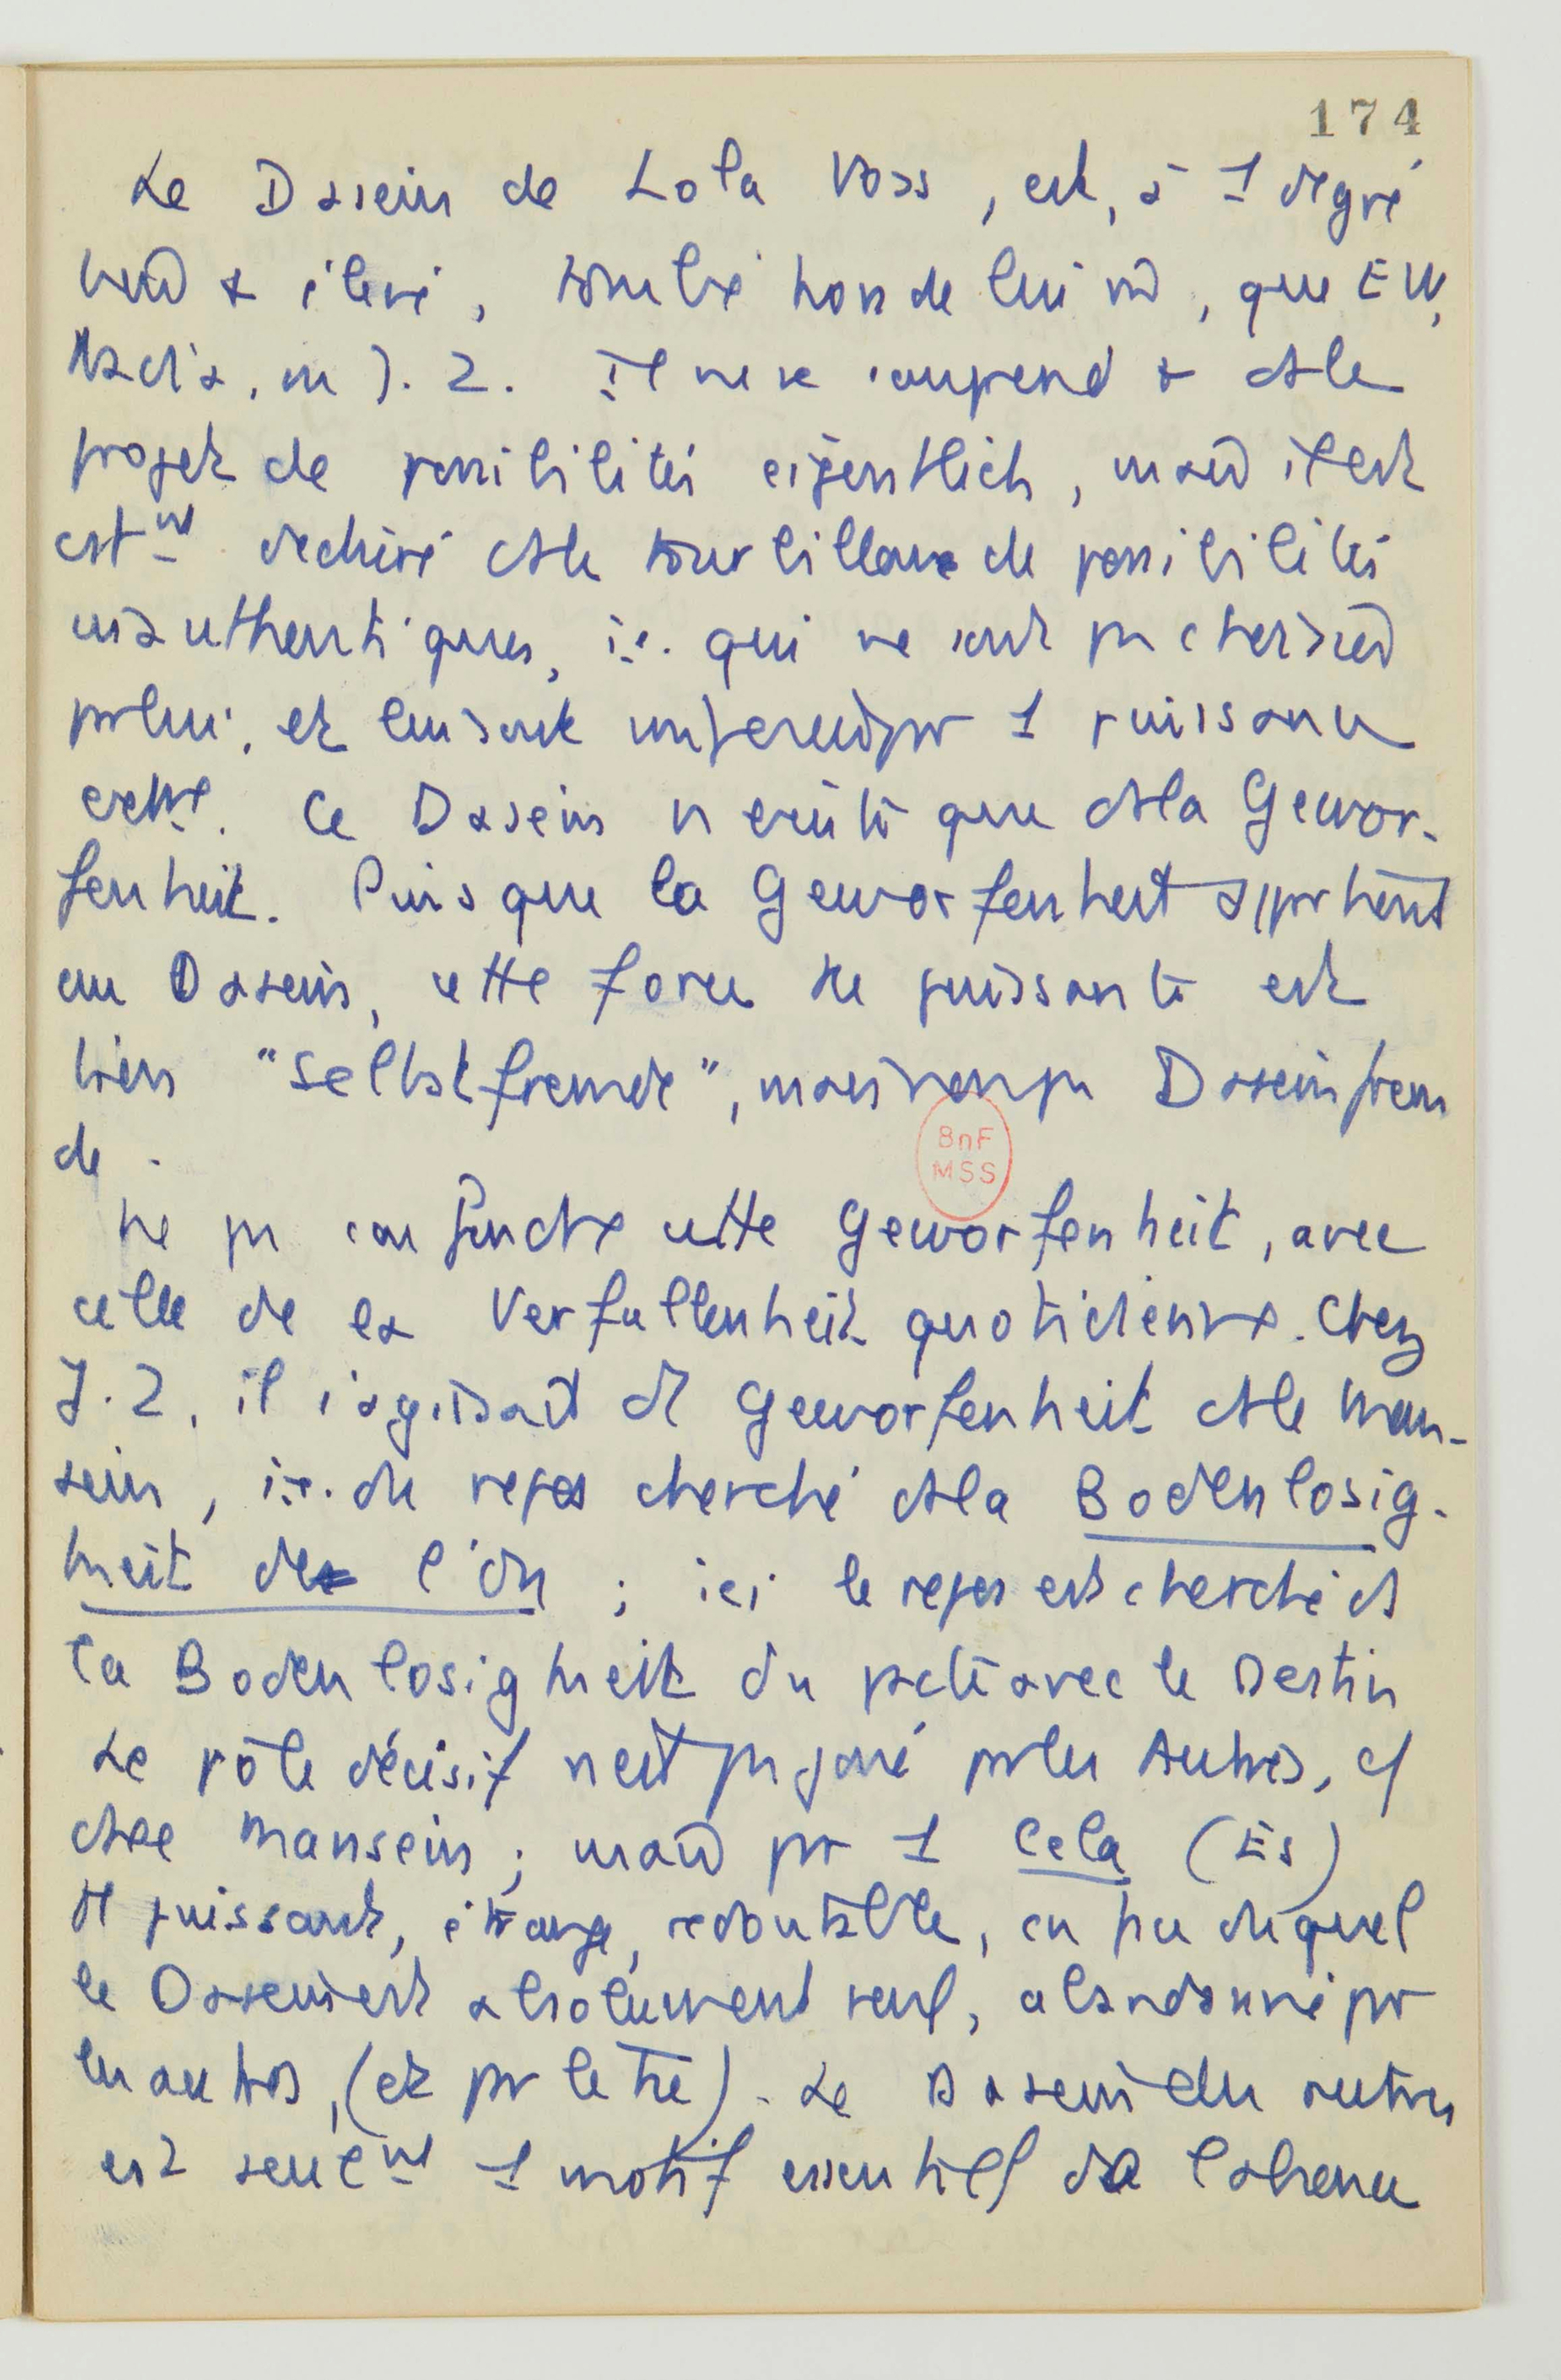 174
Le Dasein de Lola Voss, est, à 1 degré
bcp + élevé, tombé hors de lui m̂, que EW,
Nadia, ou J. Z. Il ne se comprend + ds le
projet de possibilités eigentlich, mais il est
cstmt déchiré ds le tourbillon de possibilités
inauthentiques, i.e. qui ne sont pas choisies
par lui, et lui sont imposées par 1 puissance
extne. Ce Dasein n'existe que ds la Gewor-
fenheit. Puisque la Geworfenheit appartient
au Dasein, cette force tte puissante est
bien "Selbstfremde", mais non pas Daseinfrem
de.
Ne pas confondre cette Geworfenheit, avec
celle de la Verfallenheit quotidienne. Chez
J. Z, il s'agissait de Geworfenheit ds le Man-
sein, i.e. du repos cherché ds la Bodenlosig-
keit de l'On ; ici le repos est cherché ds
la Bodenlosigkeit du pacte avec le Destin
Le rôle décisif n'est pas joué par les Autres, cf
ds le Mansein ; mais par 1 Cela (Es)
tt puissant, étrange, redoutable, en face duquel
le Dasein est absolument seul, abandonné par
les autres, (et par le tie). Le Dasein des autres
est seulmt 1 motif essentiel de l'absence
BnF
MSS